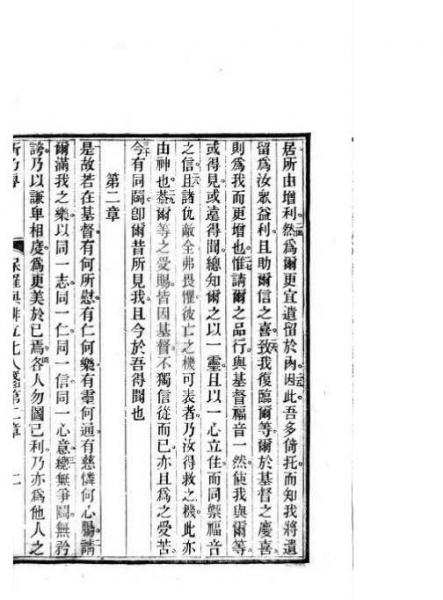 居所由增利然爲爾更宜遺留於肉因此吾多倚托而知我將遺
留爲汝衆益利且助爾信之喜致我復臨爾等爾於基督之慶喜
則爲我而更增也惟請爾之品行與基督福音一然使我與爾等
或得見或遠得聞總知爾之以一靈且以一心立住而同禦福音
之信且諸仇敵全弗畏懼彼亡之機可表者乃汝得救之機此亦
由神也葢爾等之受賜皆因基督不獨信從而已亦且爲之受苦
今有同鬬卽爾昔所見我且今於吾得聞也
第二章
是故若在基督有何所慰有仁何樂有靈何通有慈憐何心腸請
爾滿我之樂以同一志同一仁同一信同一心意總無爭鬬無矜
誇乃以謙卑相度爲更美於己焉各人勿圖己利乃亦爲他人之
保羅與非立比人書第二章